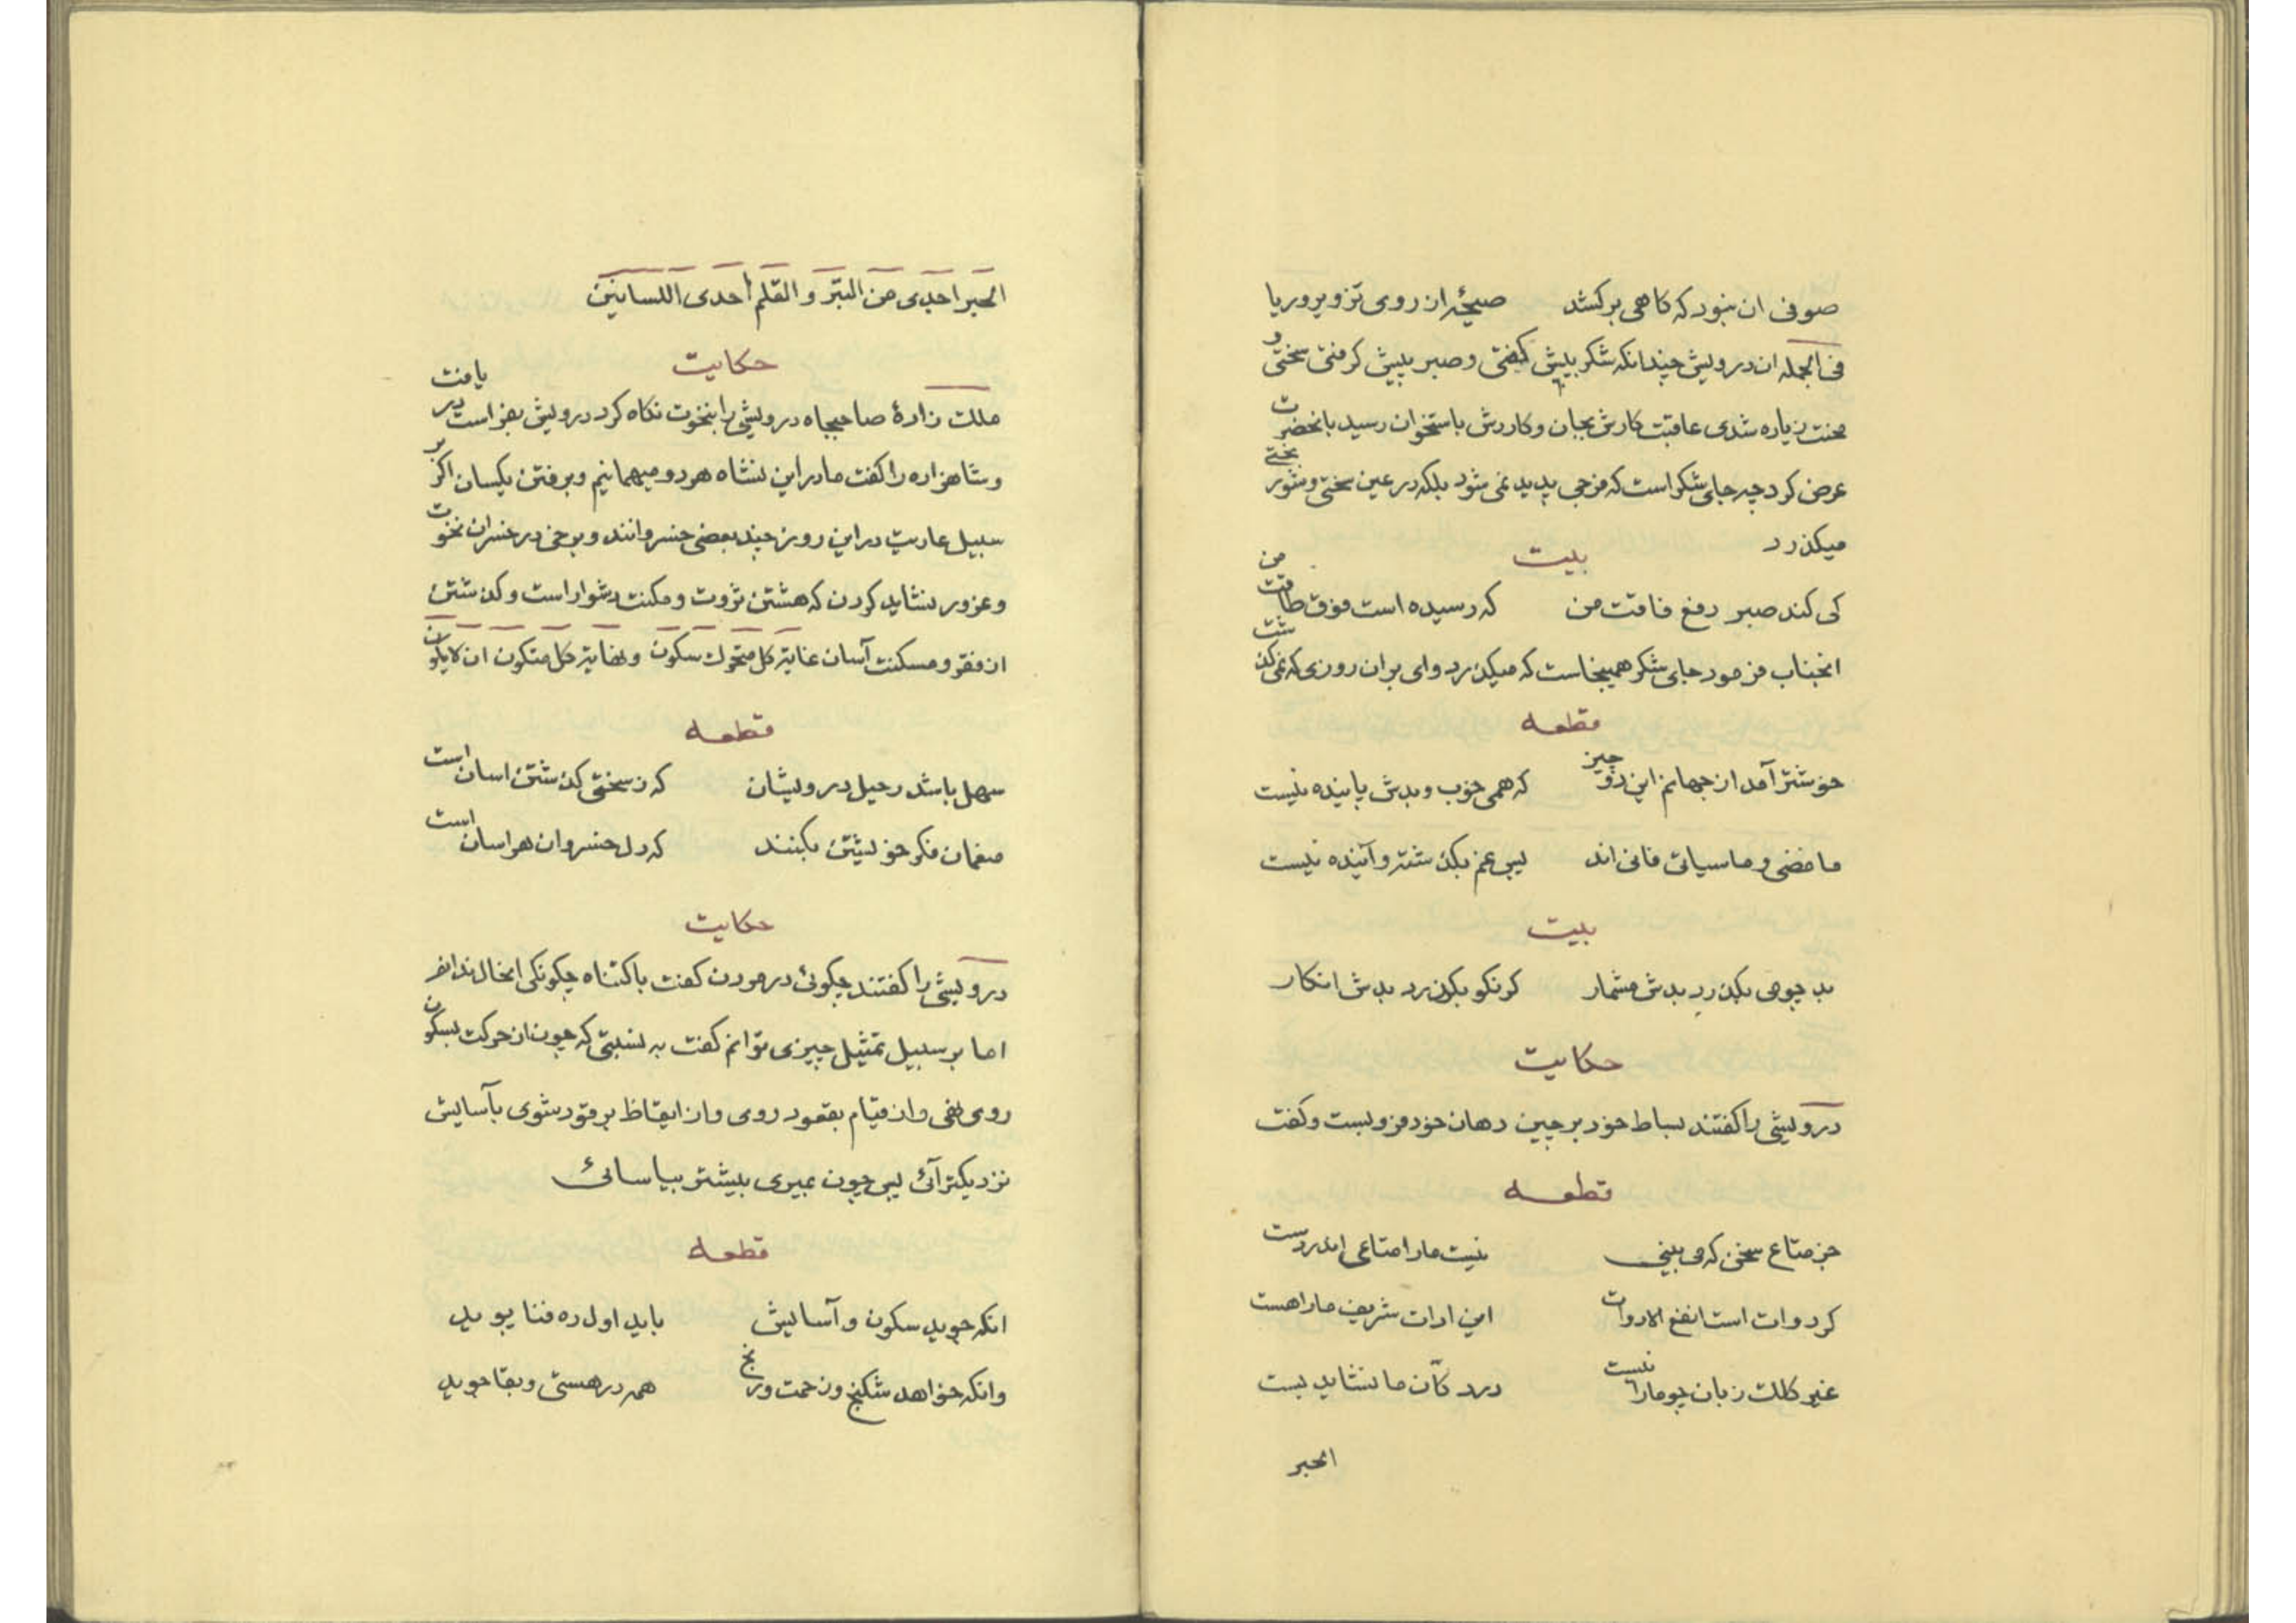 صوفی ان نبود که کاهی برکشد صیحهٔ از روی تزویر و ریا
فی الجمله ان درویش چندانکه شکر بیش کفتی و صبر پیش کرفتی سختی و
محنت زیاده شدی عاقبت کارش بجان و کاردش باستخوان رسید بانحضرت
عرض کرد چه جای شکر است که فرجی پدید نمی شود بلکه در عین سختی و شور بختی
میکذرد
بیت
کی کند صبر دفع فاقت من که رسیده است فوق طاقت من
انجناب فرمود جای شکر همینجاست که میکذرد وای بر ان روزی که نمی کذشت
قطعه
خوشتر آمد از جهانم این دو چیز که همی خوب و بدش پاینده نیست
ما مضی و ما سیاتی فانی اند پس غم بکذشته و آینده نیست
بیت
بد چو می بکذرد بدش مشمار کر نکو بکذرد بدش انکار
حکایت
درویشی را کفتند بساط خود برچین دهان خود فرو بست و کفت
قطعه
جز متاع سخن که می بینی نیست ما را متاعی اندر دست
کر دوات است انفع الادوات این ادات شریف ما را هست
غیر کلک زبان چو ما را نیست در دکّان ما نشاید بست
الحبر
الحبر احدی من البّر و القلم احدی اللسانین
حکایت
ملک زادهٔ صاحبجاه درویشی را بنخوت نکاه کرد درویش بفراست در یافت
و شاهزاده را کفت ما در این نشاه هر دو میهمانیم و برفتن یکسان اکر بر
سبیل عاریت در این روز چند بعضی خسروانند و برخی در خسران نخوت
و غرور نشاید کردن که هشتن ثروت و مکنت دشوار است و کذشتن
از فقر و مسکنت آسان غایة کل متحرک سکون و نهایة کل متکون ان لایکون
قطعه
سهل باشد رحیل درویشان که ز سختی کذشتن اسان است
منعمان فکر خویشتن بکنند که دل خسروان هراسان است
حکایت
درویشی را کفتند چکونهٔ در مردن کفت باکتناه چکونکی انحال ندانم
اما بر سبیل تمثیل چیزی توانم کفت به نسبتی که چون از حرکت بسکون
روی نهی و از قیام بقعود روی و از ایقاظ برقود شوی بآسایش
نزدیکتر آئی پس چون بمیری بیشتر بیاسائی
قطعه
انکه جوید سکون و آسایش باید اول ره فنا پوید
وانکه خواهد شکنج و زحمت و رنج همه در هستی و بقا جوید